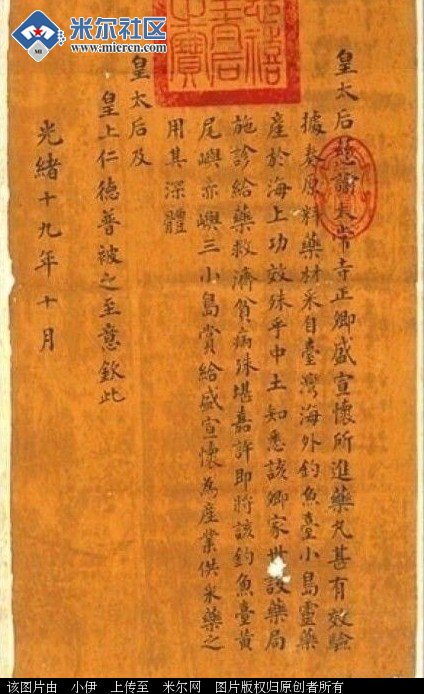 米尔社区
www.miercn.com
皇太后慈諭太常寺正卿盛宣懷所進藥丸甚有效驗
據奏原料藥材采自臺灣海外釣魚臺小島靈藥
產於海上功效殊乎中土知悉該卿家世設藥局
施診給藥救濟貧病殊堪嘉許即將該釣魚臺黃
尾嶼赤嶼三小島賞給盛宣懷為產業供采藥之
用其深體
皇太后及
皇上仁德普被之至意欽此
光緒十九年十月
该图片由 小伊 上传至 米尔网 图片版权归原创者所有